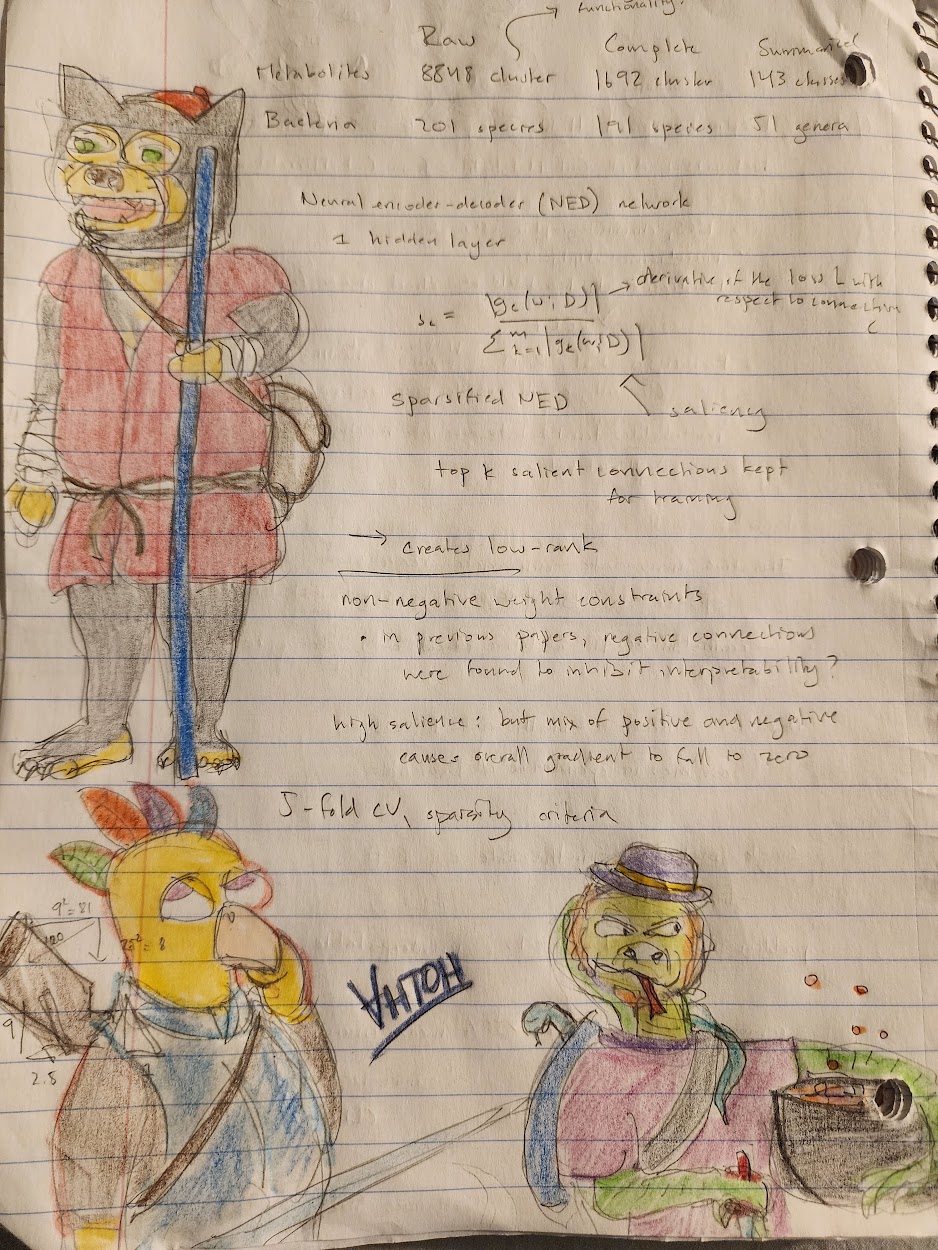 functionality.
Raw Complete Summarized
Metabolites 8848 cluster 1692 cluster 143 classes
Bacteria 201 species 191 species 51 genera
Neural encoder-decoder (NED) network
1 hidden layer
s_c = |g_c(w; D)| / Σ^m_{k=1} |g_k(w; D)|
→ derivative of the loss L with
respect to connection
c
Sparsified NED
saliency
top k salient connections kept
for training
→ creates low-rank
non-negative weight constraints
• in previous papers, negative connections
were found to inhibit interpretability?
high salience: but mix of positive and negative
causes overall gradient to fall to zero
5-fold CV, sparsity criteria
9² = 81
AHTOH
9
2.8